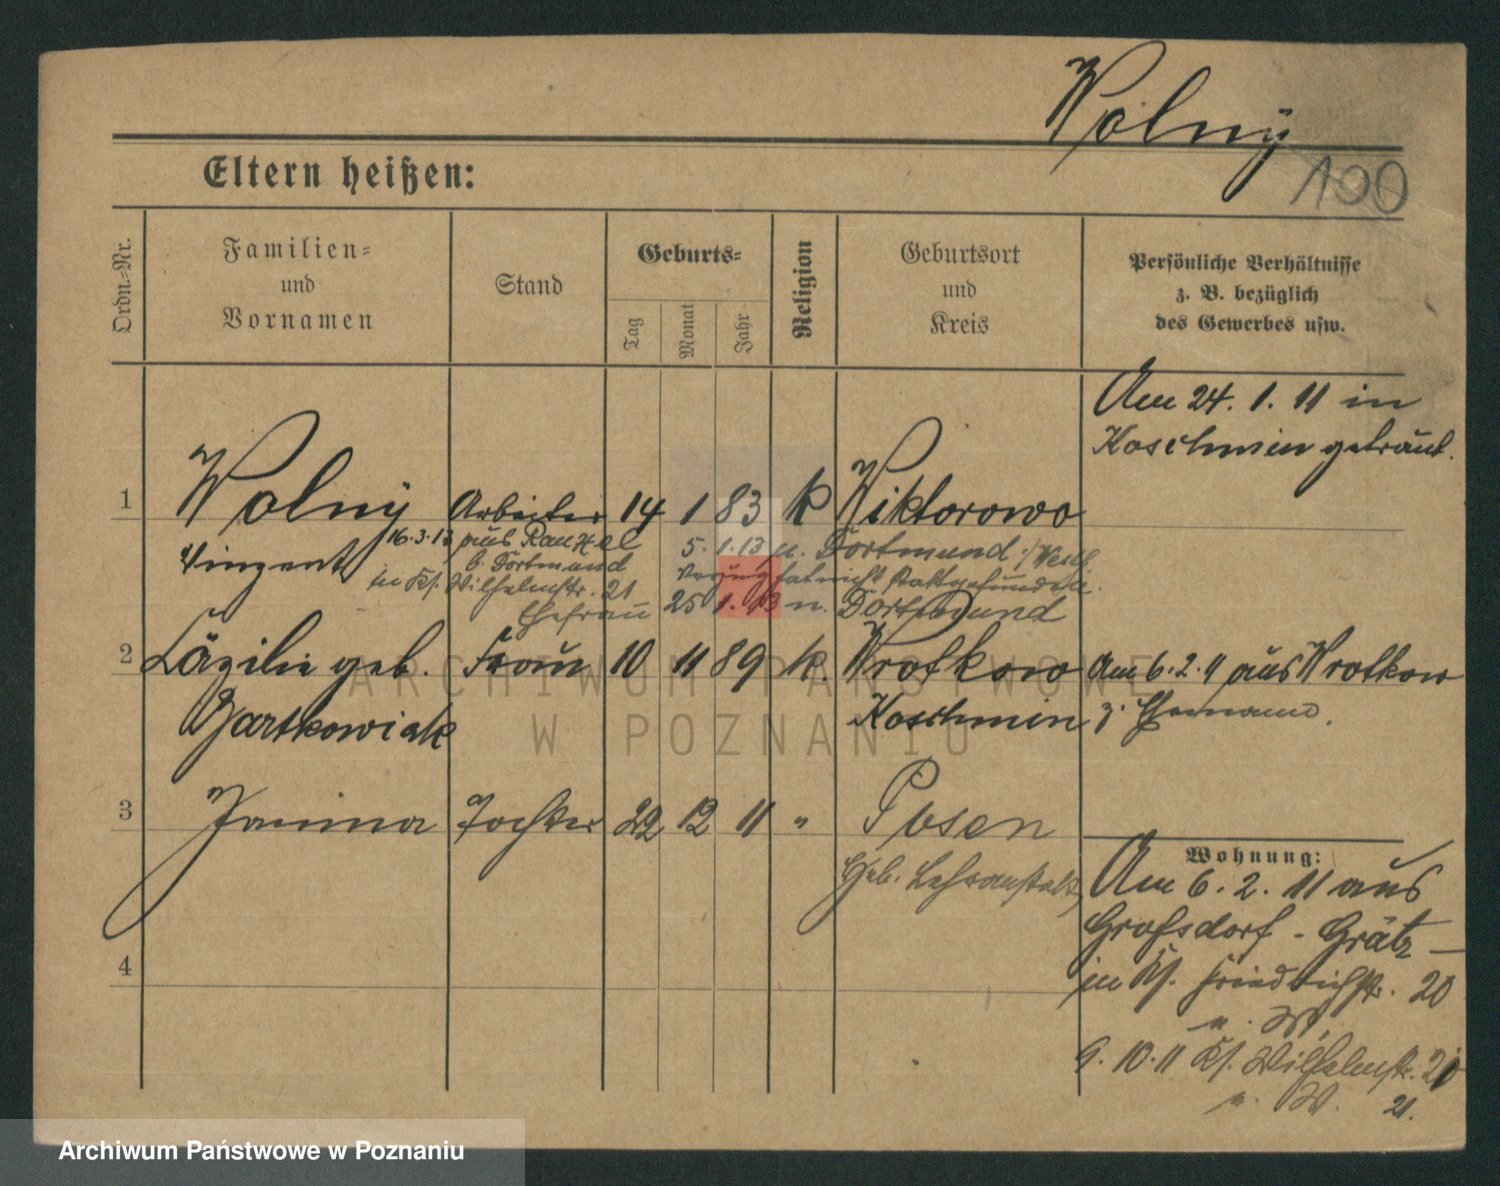 Wolny
100
Eltern heißen:
Ordn.-Nr.
Familien-
und
Vornamen
Stand
Geburts-
Tag
Monat
Jahr
Religion
Geburtsort
und
Kreis
Persönliche Verhältnisse
z. B. bezüglich
des Gewerbes usw.
Am 24. 1. 11 in
Koschmin getraut.
1 Wolny Arbeiter 14 1 83 k Wiktorowo
Vinzent 16.3.13 aus Rauxel 5. 1. 13 n. Dortmund
b. Dortmund Verzug hat nicht stattgefunden.
in Wilhelmstr. 21
Ehefrau 25 1. 13 n. Dortmund
2 Cäzilie geb. Frau 10 11 89 k. Wrotkowo Am 6. 2. 11 aus Wrotkow
Bartkowiak Koschmin z. Ehemann.
3 Janina Tochter 22 12 11 " Posen
Geb. Lehranstalt
Wohnung:
Am 6. 2. 11 aus
Grofsdorf - Grätz -
in Friedrichstr. 20
n. W.
9. 10. 11 Wilhelmstr. 20
n. W. 21.
4
ARCHIWUM PAŃSTWOWE
W POZNANIU
Archiwum Państwowe w Poznaniu